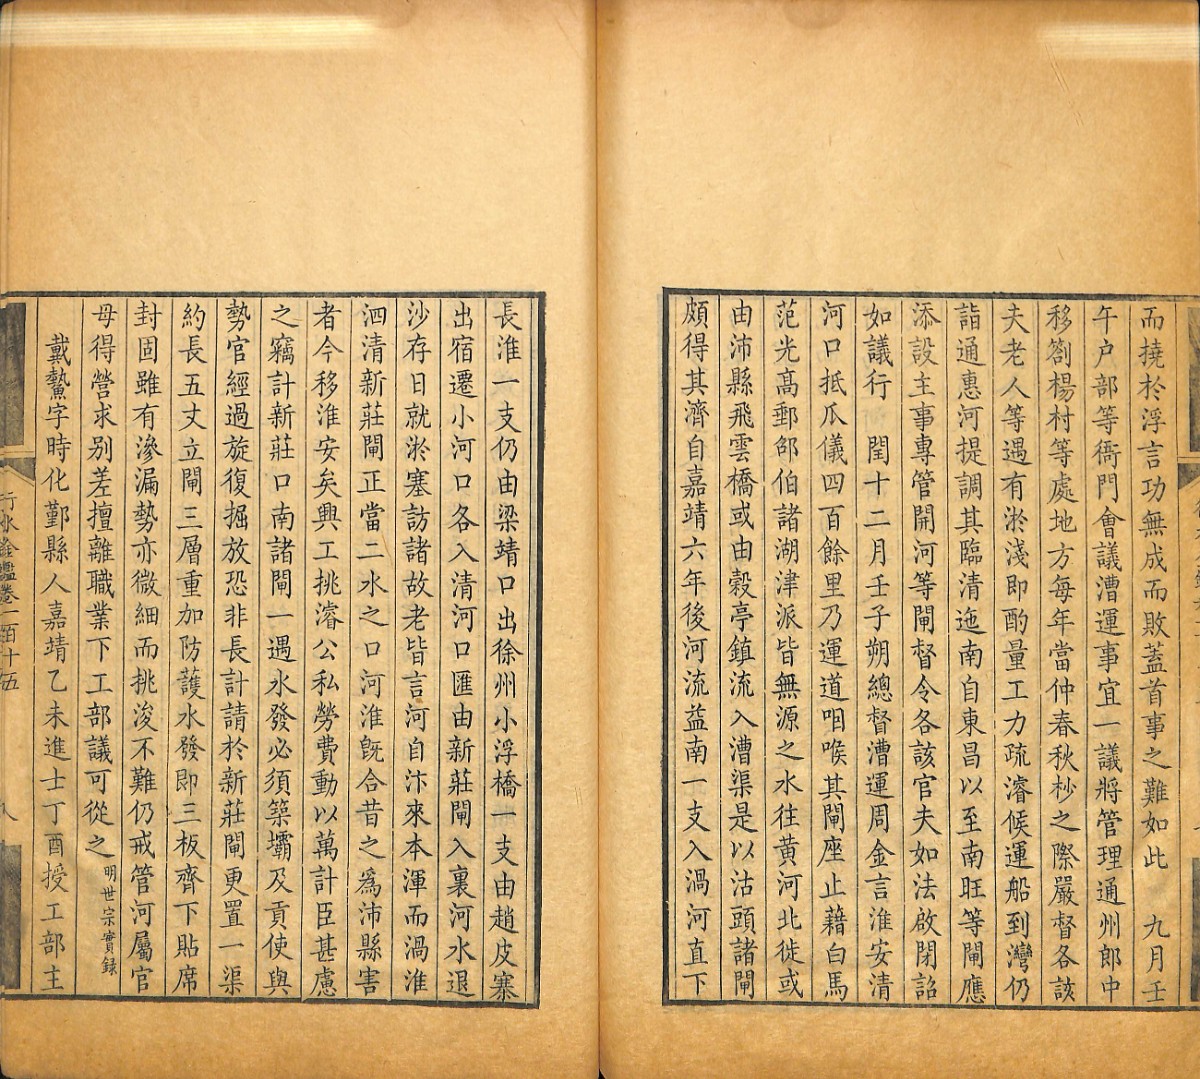 而撓於浮言功無成而敗蓋首事之難如此　九月壬
午户部等衙門會議漕運事宜一議將管理通州郎中
移劄楊村等處地方每年當仲春秋杪之際嚴督各該
夫老人等遇有淤淺即酌量工力疏濬候運船到灣仍
詣通惠河提調其臨清迤南自東昌以至南旺等閘應
添設主事專管開河等閘督令各該官夫如法啟閉詔
如議行　閏十二月壬子朔總督漕運周金言淮安清
河口抵瓜儀四百餘里乃運道咽喉其閘座止藉白馬
范光髙郵邵伯諸湖津派皆無源之水往黄河北徙或
由沛縣飛雲橋或由穀亭鎮流入漕渠是以沽頭諸閘
頗得其濟自嘉靖六年後河流益南一支入渦河直下
長淮一支仍由梁靖口出徐州小浮橋一支由趙皮寨
出宿遷小河口各入清河口匯由新莊閘入裏河水退
沙存日就淤塞訪諸故老皆言河自汴來本渾而渦淮
泗清新莊閘正當二水之口河淮旣合昔之爲沛縣害
者今移淮安矣興工挑濬公私勞費動以萬計臣甚慮
之竊計新莊口南諸閘一遇水發必須築壩及貢使與
勢官經過旋復掘放恐非長計請於新莊閘更置一渠
約長五丈立閘三層重加防護水發即三板齊下貼席
封固雖有滲漏勢亦微細而挑浚不難仍戒管河屬官
毋得營求别差擅離職業下工部議可從之明世宗實録
戴鱀字時化鄞縣人嘉靖乙未進士丁酉授工部主
行水金鑑卷一百十五
八